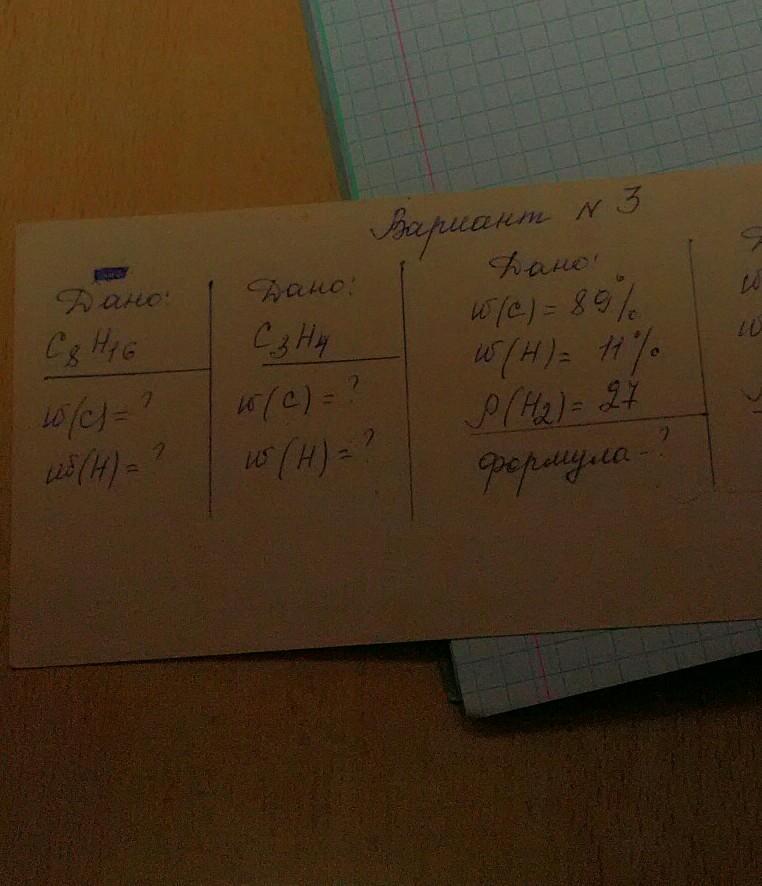 Вариант N 3
Дано:
C8H16
w(C) = ?
w(H) = ?
Дано:
C3H4
w(C) = ?
w(H) = ?
Дано:
w(C) = 89%
w(H) = 11%
ρ(H2) = 27
формула - ?